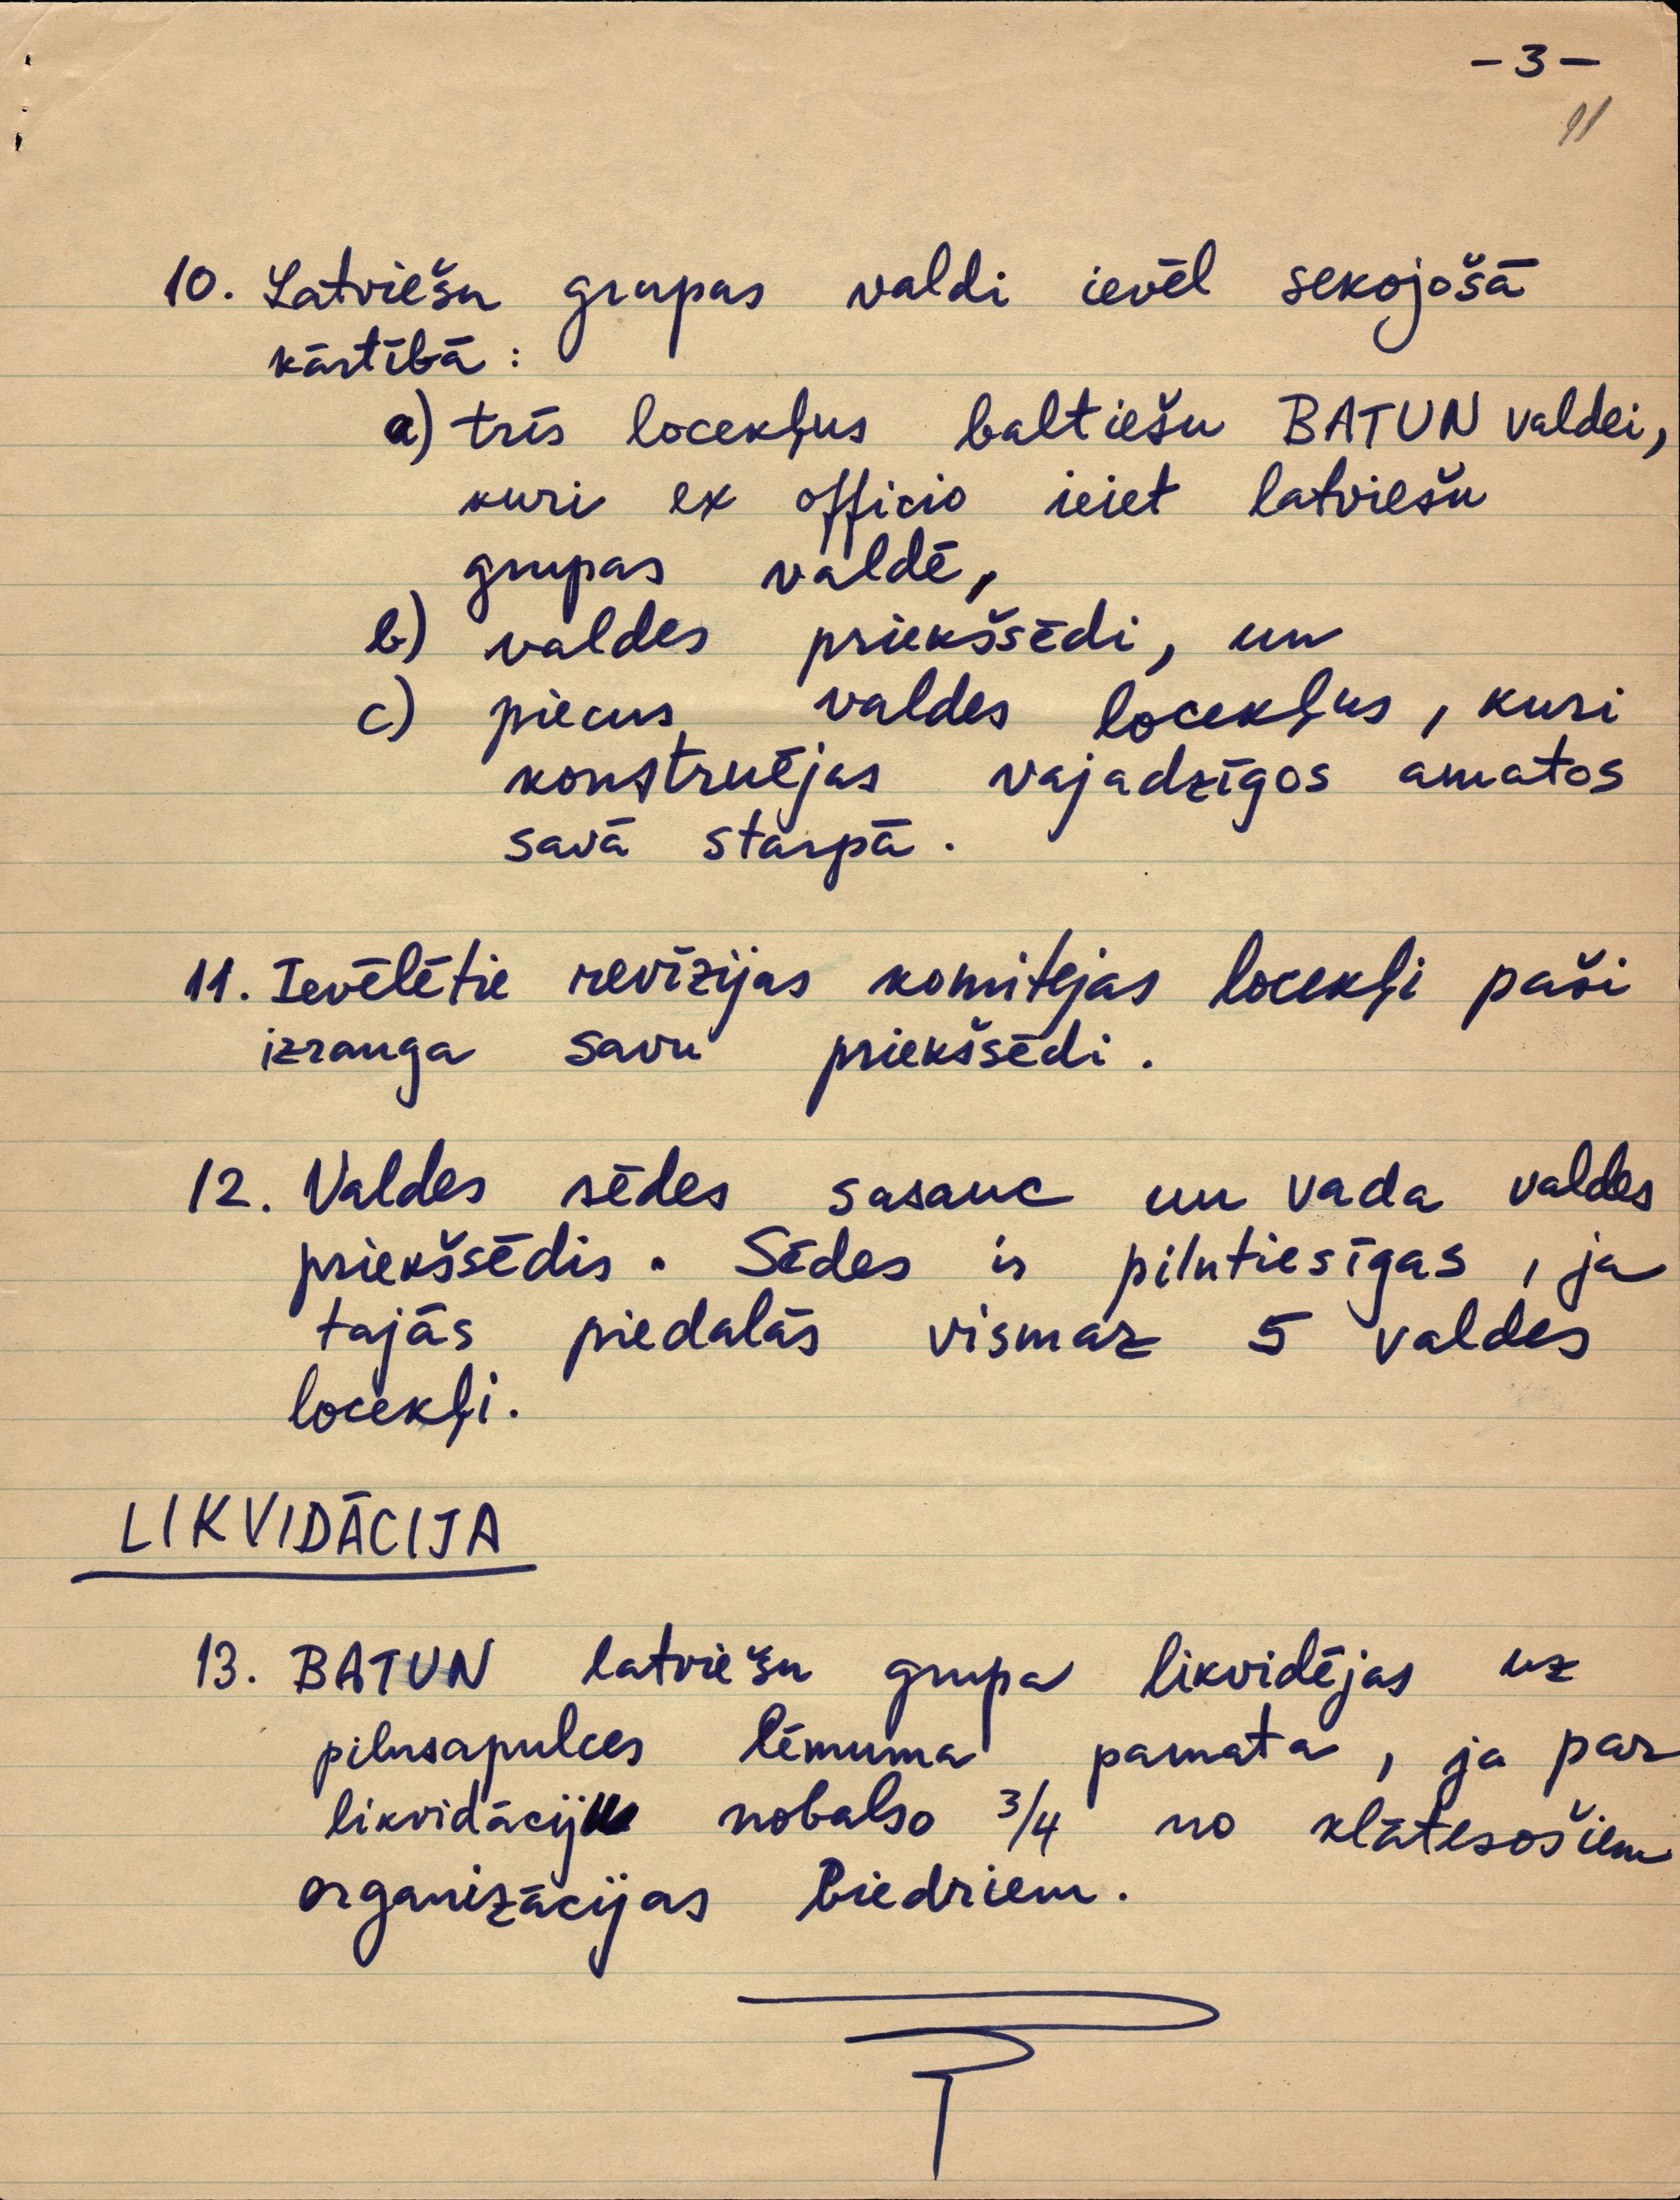 -3-
11
10. Latviešu grupas valdi ievēl sekojošā
kārtībā:
a) trīs locekļus baltiešu BATUN valdei,
kuri ex officio ieiet latviešu
grupas valdē,
b) valdes priekšsēdi, un
c) piecus valdes locekļus, kuri
konstruējas vajadzīgos amatos
savā starpā.
11. Ievēlētie revīzijas komitejas locekļi paši
izrauga savu priekšsēdi.
12. Valdes sēdes sasauc un vada valdes
priekšsēdis. Sēdes ir pilntiesīgas, ja
tajās piedalās vismaz 5 valdes
locekļi.
LIKVIDĀCIJA
13. BATUN latviešu grupa likvidējas uz
pilnsapulces lēmuma pamata, ja par
likvidāciju nobalso 3/4 no klātesošiem
organizācijas biedriem.